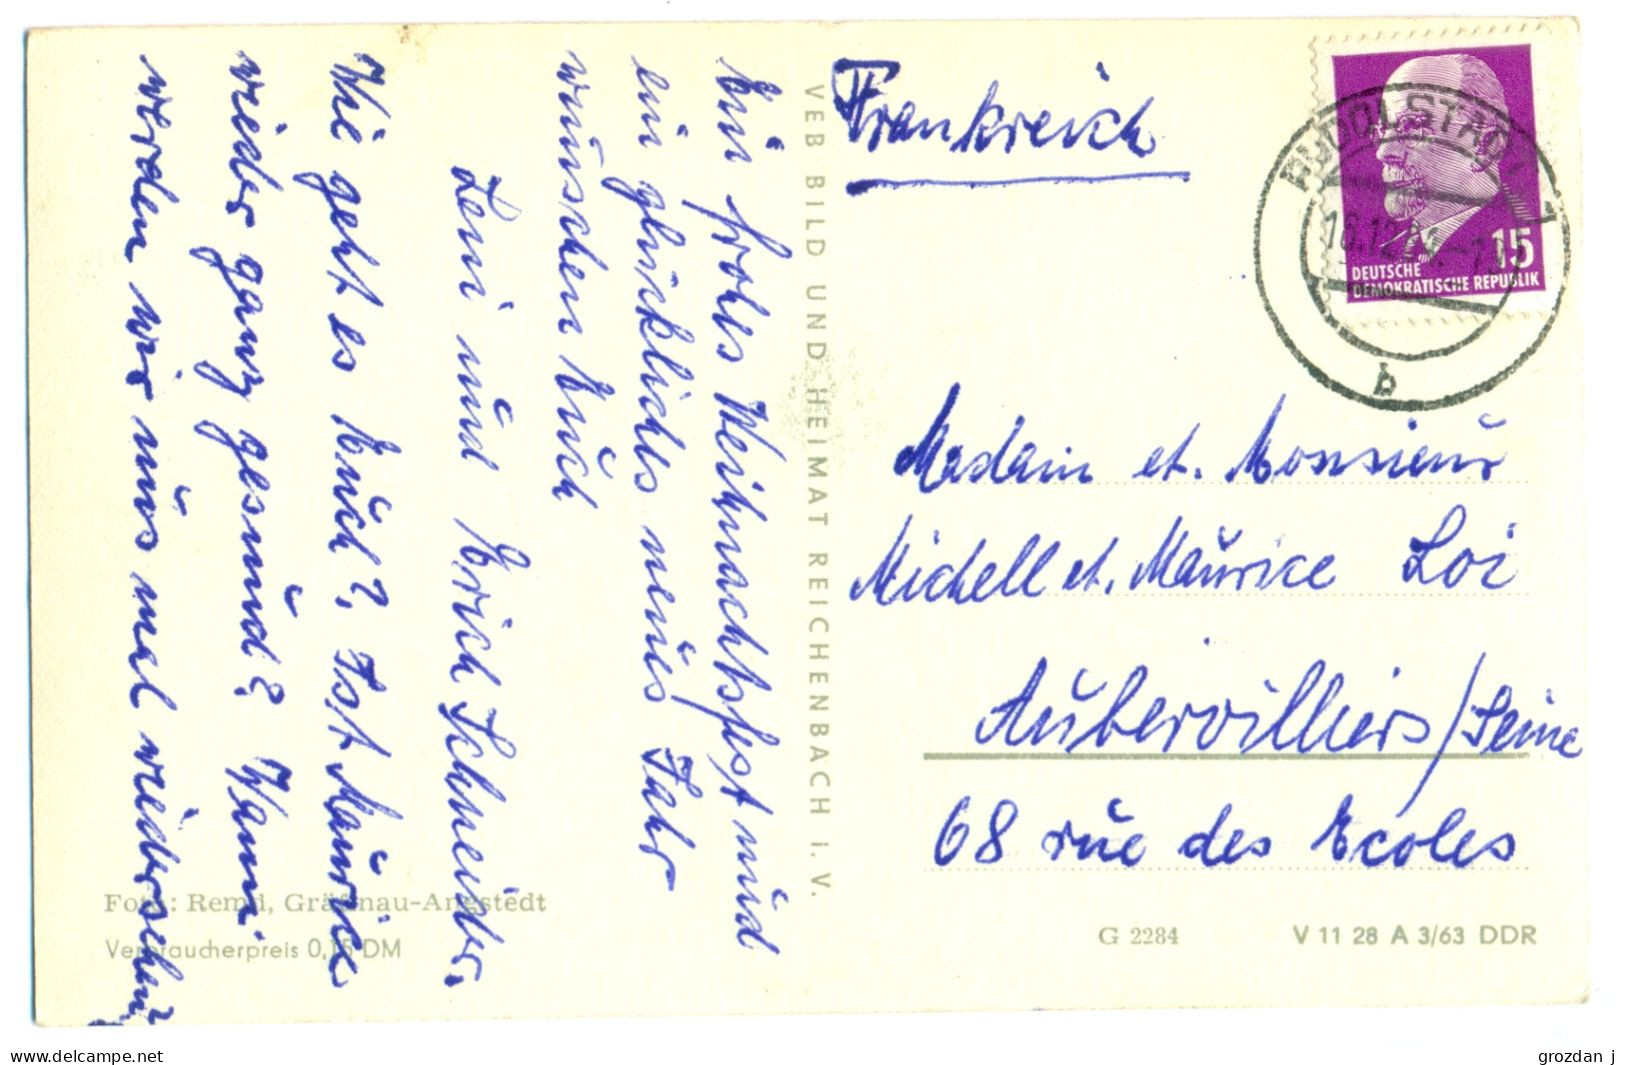 Ein frohes Weihnachtsfest und
ein glückliches neues Jahr
wünschen Euch
Leni und Erich Schneider.
Wie geht es Euch? Ist Maurice
wieder ganz gesund? Wann
werden wir uns mal wiedersehen?
VEB BILD UND HEIMAT REICHENBACH i. V.
Foto: Remd, Gräfinau-Angstedt
Verbraucherpreis 0,15 DM
Frankreich
RUDOLSTADT 1
b
15
DEUTSCHE
DEMOKRATISCHE REPUBLIK
Madam et. Monsieur
Michell et. Maurice Loi
Aubervilliers/Seine
68 rue des Ecoles
G 2284
V 11 28 A 3/63 DDR
www.delcampe.net
grozdan j